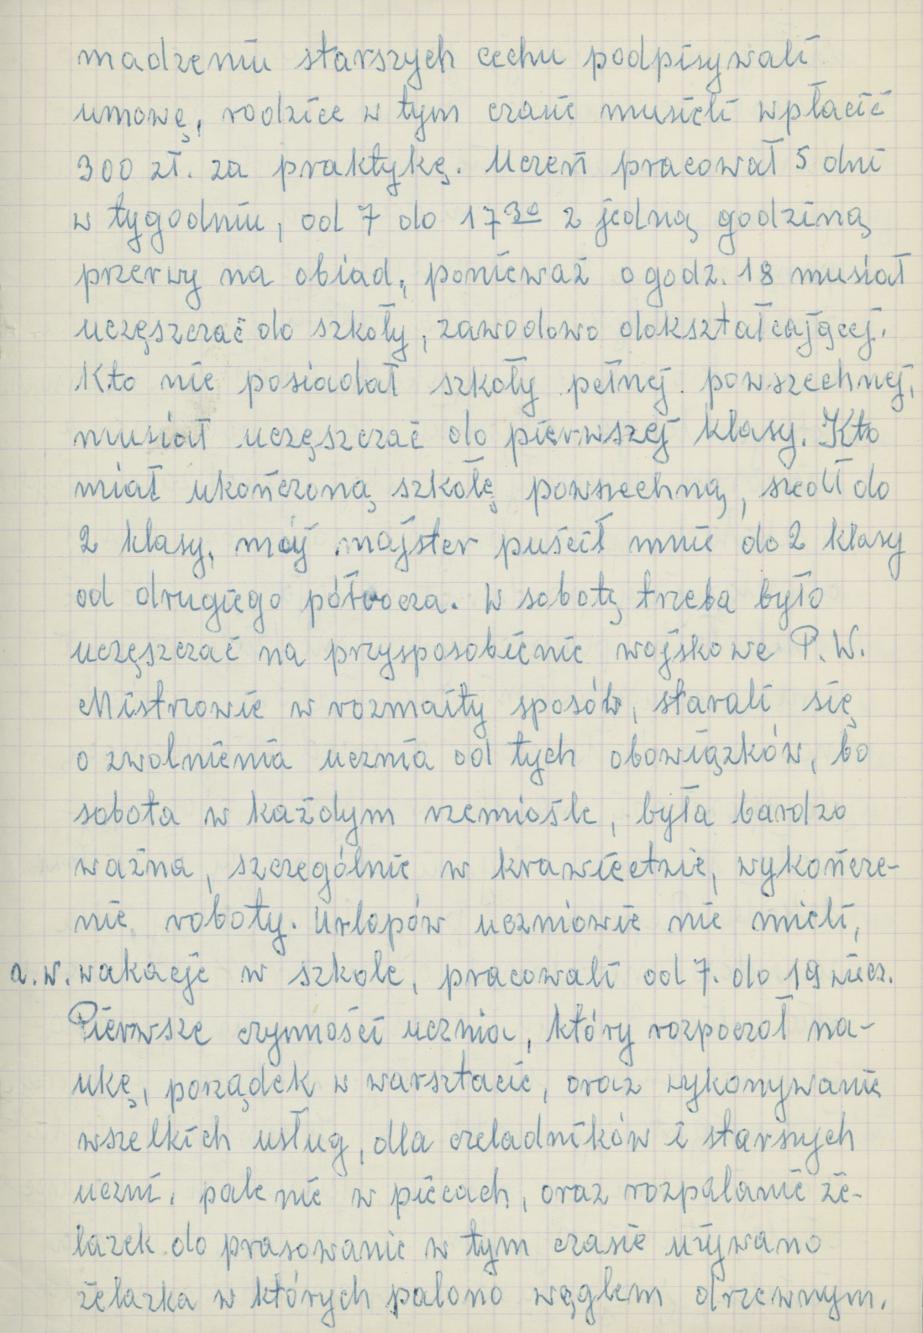 madzeniu starszych cechu podpisywali
umowę, rodzice w tym czasie musieli wpłacić
300 zł. za praktykę. Uczeń pracował 5 dni
w tygodniu, od 7 do 17³⁰ z jedną godziną
przerwy na obiad, ponieważ o godz. 18 musiał
uczęszczać do szkoły, zawodowo dokształcającej.
Kto nie posiadał szkoły pełnej powszechnej,
musiał uczęszczać do pierwszej klasy. Kto
miał ukończoną szkołę powszechną, szedł do
2 klasy, mój majster puścił mnie do 2 klasy
od drugiego półrocza. W sobotę trzeba było
uczęszczać na przysposobienie wojskowe P.W.
Mistrzowie w rozmaity sposób, starali się
o zwolnienia ucznia od tych obowiązków, bo
sobota w każdym rzemiośle, była bardzo
ważna, szczególnie w krawiectwie, wykończe-
nie roboty. Urlopów uczniowie nie mieli,
a.w. wakacje w szkole, pracowali od 7. do 19 wiecz.
Pierwsze czynności ucznia, który rozpoczoł na-
ukę, porządek w warsztacie, oraz wykonywanie
wszelkich usług, dla czeladników i starszych
uczni, palenie w piecach, oraz rozpalanie że-
lazek do prasowanie w tym czasie używano
żelazka w których palono węglem drzewnym.